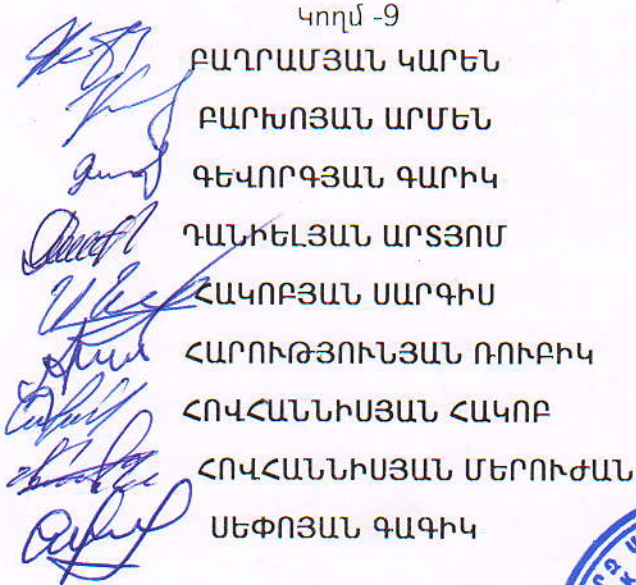 Կողմ -9
ԲԱՂՐԱՄՅԱՆ ԿԱՐԵՆ
ԲԱՐԽՈՅԱՆ ԱՐՄԵՆ
ԳԵՎՈՐԳՅԱՆ ԳԱՐԻԿ
ԴԱՆԻԵԼՅԱՆ ԱՐՏՅՈՄ
ՀԱԿՈԲՅԱՆ ՍԱՐԳԻՍ
ՀԱՐՈՒԹՅՈՒՆՅԱՆ ՌՈՒԲԻԿ
ՀՈՎՀԱՆՆԻՍՅԱՆ ՀԱԿՈԲ
ՀՈՎՀԱՆՆԻՍՅԱՆ ՄԵՐՈՒԺԱՆ
ՍԵՓՈՅԱՆ ԳԱԳԻԿ